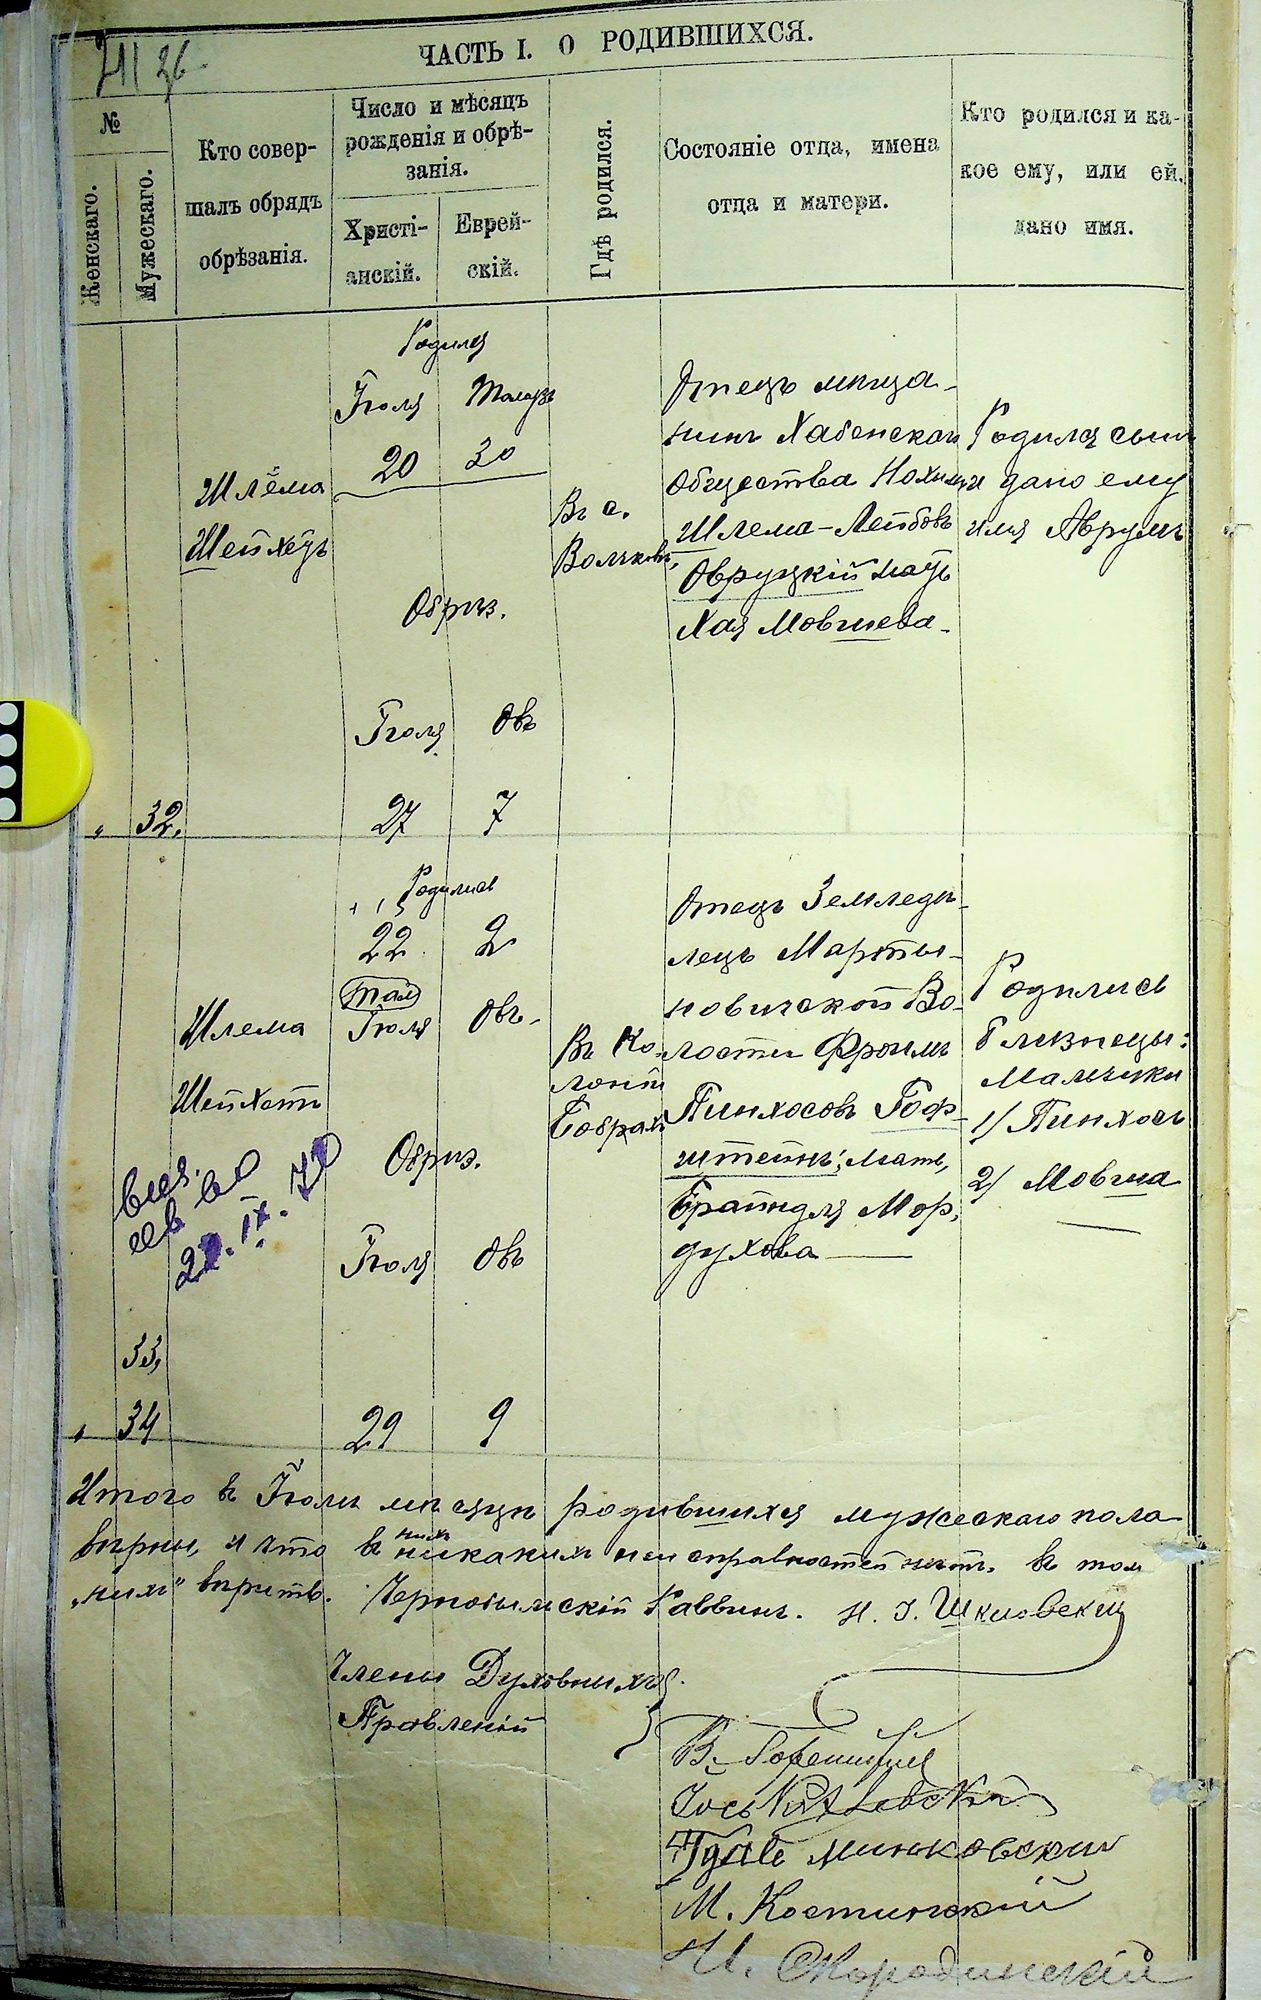 ЧАСТЬ I. О РОДИВШИХСЯ.
№
Женскаго.
Мужескаго.
Кто совер-
шалъ обрядъ
обрѣзанія.
Число и мѣсяцъ
рожденія и обрѣ-
занія.
Христі-
анскій.
Еврей-
скій.
Гдѣ родился.
Состояніе отца, имена
отца и матери.
Кто родился и ка-
кое ему, или ей,
дано имя.
„ 32.
Шлёма
Шейхетъ
Родился
Іюля
20 30
Обрѣз.
Іюля Овъ
27 7
Въ с.
Отецъ мѣща-
нинъ Хабенскаго
Общества Нохимъ
Шлема-Лейбовъ
Овруцкій мать
Хая Мовшева
Родился сынъ
и дано ему
имя Аврумъ
33,
„ 34
Шлема
Шейхетъ
22. IX. 70
Родились
22 2
Іюля Овъ
Обрѣз.
Іюля Овъ
29 9
Въ Ко-
лоніи
Отецъ Земледѣ-
лецъ Марты-
новичской Во-
лости Фроимъ
Пинхосовъ Гоф-
штейнъ; мать,
Брайндля Мор-
духова
Родились
близнецы:
Мальчики
1) Пинхосъ
2) Мовша
Итого въ Іюлѣ мѣсяцѣ родившихся мужескаго пола
вѣрны, и что въ нихъ никакихъ неисправностей нѣтъ. въ томъ
„нихъ" вѣрить. Чернобыльскій Раввинъ. Н. І. Шкловскій
Члены Духовныхъ
Правленій
Іось
Минковскій
М. Костинскій
Скородинскій